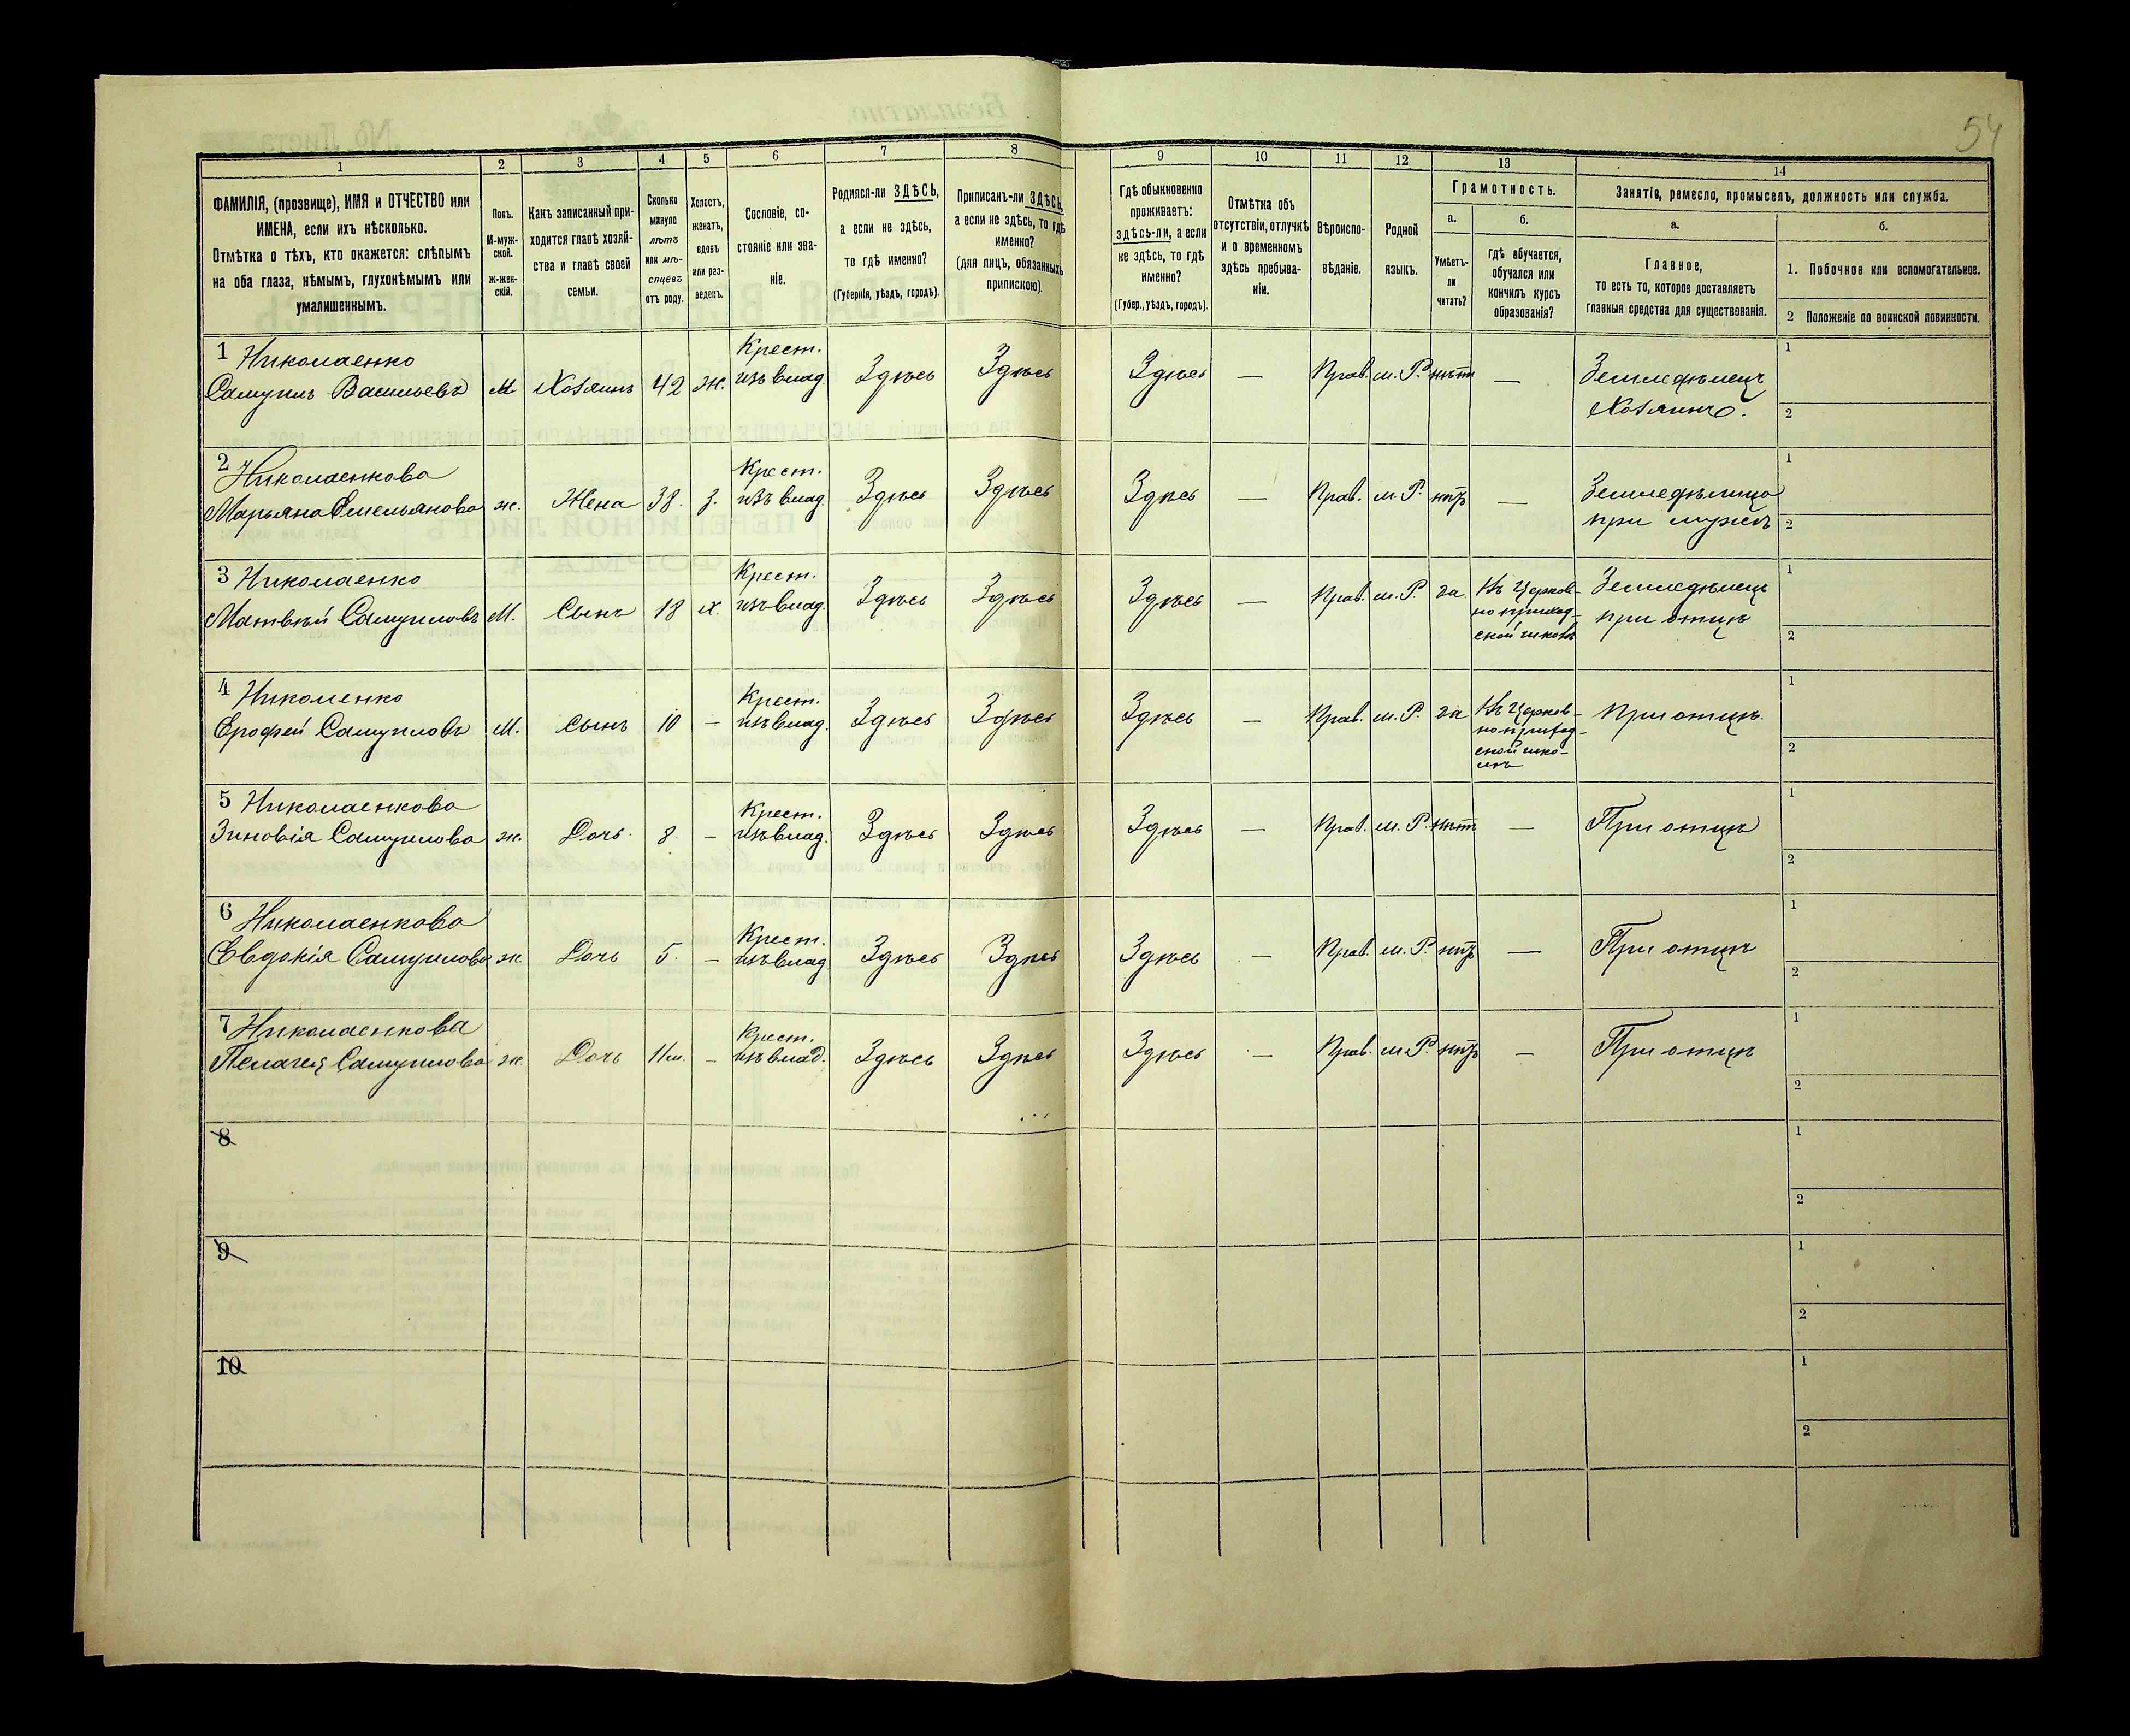 54
1 2 3 4 5 6 7 8 9 10 11 12 13 14
ФАМИЛІЯ, (прозвище), ИМЯ и ОТЧЕСТВО или
ИМЕНА, если ихъ нѣсколько.
Отмѣтка о тѣхъ, кто окажется: слѣпымъ
на оба глаза, нѣмымъ, глухонѣмымъ или
умалишеннымъ.
Полъ.
М-муж-
ской.
ж-жен-
скій.
Какъ записанный при-
ходится главѣ хозяй-
ства и главѣ своей
семьи.
Сколько
минуло
лѣтъ
или мѣ-
сяцевъ
отъ роду.
Холостъ,
женатъ,
вдовъ
или раз-
веденъ.
Сословіе, со-
стояніе или зва-
ніе.
Родился-ли ЗДѢСЬ,
а если не здѣсь,
то гдѣ именно?
(Губернія, уѣздъ, городъ).
Приписанъ-ли ЗДѢСЬ,
а если не здѣсь, то гдѣ
именно?
(для лицъ, обязанныхъ
припискою).
Гдѣ обыкновенно
проживаетъ:
здѣсь-ли, а если
не здѣсь, то гдѣ
именно?
(Губер., уѣздъ, городъ).
Отмѣтка объ
отсутствіи, отлучкѣ
и о временномъ
здѣсь пребыва-
ніи.
Вѣроиспо-
вѣданіе.
Родной
языкъ.
Грамотность.
а.
Умѣетъ-
ли
читать?
б.
Гдѣ обучается,
обучался или
кончилъ курсъ
образованія?
Занятія, ремесло, промыселъ, должность или служба.
а.
Главное,
то есть то, которое доставляетъ
главныя средства для существованія.
б.
1. Побочное или вспомогательное.
2 Положеніе по воинской повинности.
1 Николаенко
Самуилъ Васильевъ М Хозяинъ 42 ж. Крест.
изъ влад. Здѣсь Здѣсь Здѣсь — Прав. м. Р. нѣтъ — Земледѣлецъ
Хозяинъ.
1
2
2 Николаенкова
Марьяна Емельянова ж. Жена 38. З. Крест.
изъ влад. Здѣсь Здѣсь Здѣсь — Прав. м. Р. нѣтъ — Земледѣлица
при мужѣ
1
2
3 Николаенко
Матвѣй Самуиловъ М. Сынъ 18 х. Крест.
изъ влад. Здѣсь Здѣсь Здѣсь — Прав. м. Р. да Въ Церков-
но приход-
ской школѣ
Земледѣлецъ
при отцѣ
1
2
4 Николенко
Ерофей Самуиловъ М. Сынъ 10 — Крест.
изъ влад. Здѣсь Здѣсь Здѣсь — Прав. м. Р. да Въ Церков-
но приход-
ской шко-
лѣ
При отцѣ.
1
2
5 Николаенкова
Зиновія Самуилова ж. Дочь 8. — Крест.
изъ влад. Здѣсь Здѣсь Здѣсь — Прав. м. Р. нѣтъ — При отцѣ
1
2
6 Николаенкова
Евдокія Самуилова ж. Дочь 5. — Крест.
изъ влад Здѣсь Здѣсь Здѣсь — Прав. м. Р. нѣтъ — При отцѣ
1
2
7 Николаенкова
Пелагея Самуилова ж. Дочь 11 м. — Крест.
изъ влад. Здѣсь Здѣсь Здѣсь — Прав. м. Р. нѣтъ — При отцѣ
1
2
8
1
2
9
1
2
10
1
2